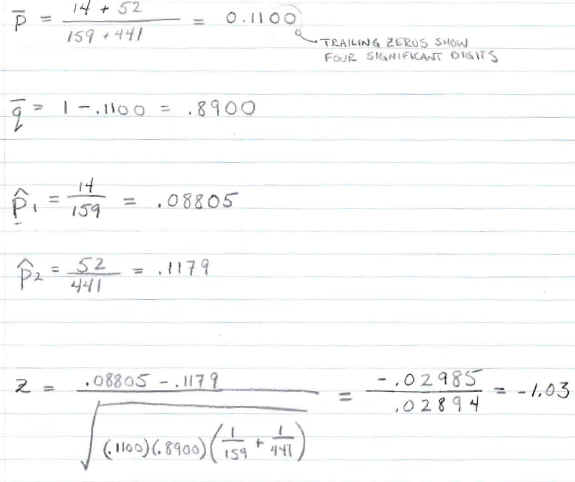 p̄ = 14 + 52 / 159 + 441 = 0.1100
TRAILING ZEROS SHOW
FOUR SIGNIFICANT DIGITS
q̄ = 1 - .1100 = .8900
p̂₁ = 14 / 159 = .08805
p̂₂ = 52 / 441 = .1179
z = .08805 - .1179 / √(.1100)(.8900)(1/159 + 1/441) = -.02985 / .02894 = -1.03